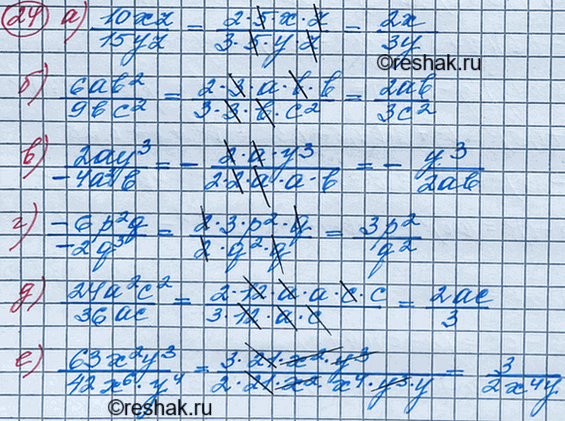 24 а) 10xz/15yz = 2·5·x·z/3·5·y·z = 2x/3y
©reshak.ru
б) 6ab²/9bc² = 2·3·a·b·b/3·3·b·c² = 2ab/3c²
в) 2ay³/-4a²b = - 2·a·y³/2·2·a·a·b = - y³/2ab
г) -6p²q/-2q³ = 2·3·p²·q/2·q²·q = 3p²/q²
д) 24a²c²/36ac = 2·12·a·a·c·c/3·12·a·c = 2ac/3
е) 63x²y³/42x⁶·y⁴ = 3·21·x²·y³/2·21·x²·x⁴·y³·y = 3/2x⁴y
©reshak.ru